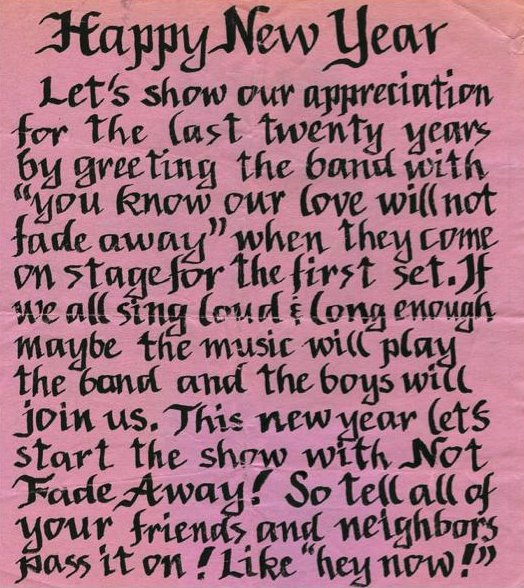 Happy New Year
Let's show our appreciation
for the last twenty years
by greeting the band with
"you know our love will not
fade away" when they come
on stage for the first set. If
we all sing loud & long enough
maybe the music will play
the band and the boys will
join us. This new year let's
start the show with Not
Fade Away! So tell all of
your friends and neighbors
pass it on! Like "hey now!"